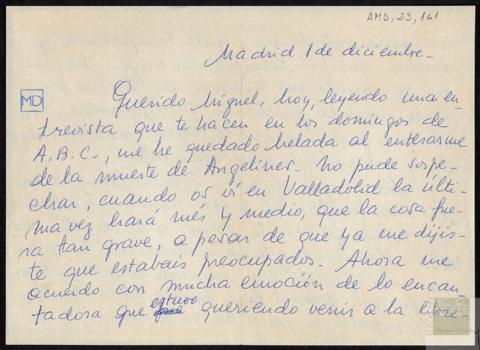 AMD, 23, 161
Madrid 1 de diciembre-
MD
Querido Miguel, hoy, leyendo una en-
trevista que te hacen en los domingos de
A.B.C., me he quedado helada al enterarme
de la muerte de Angelines. No pude sospe-
char, cuando os ví en Valladolid la últi-
ma vez hará més y medio, que la cosa fue-
ra tan grave, a pesar de que ya me dijis-
te que estabais preocupados. Ahora me
acuerdo con mucha emoción de lo encan-
tadora que estuvo queriendo venir a la libre-